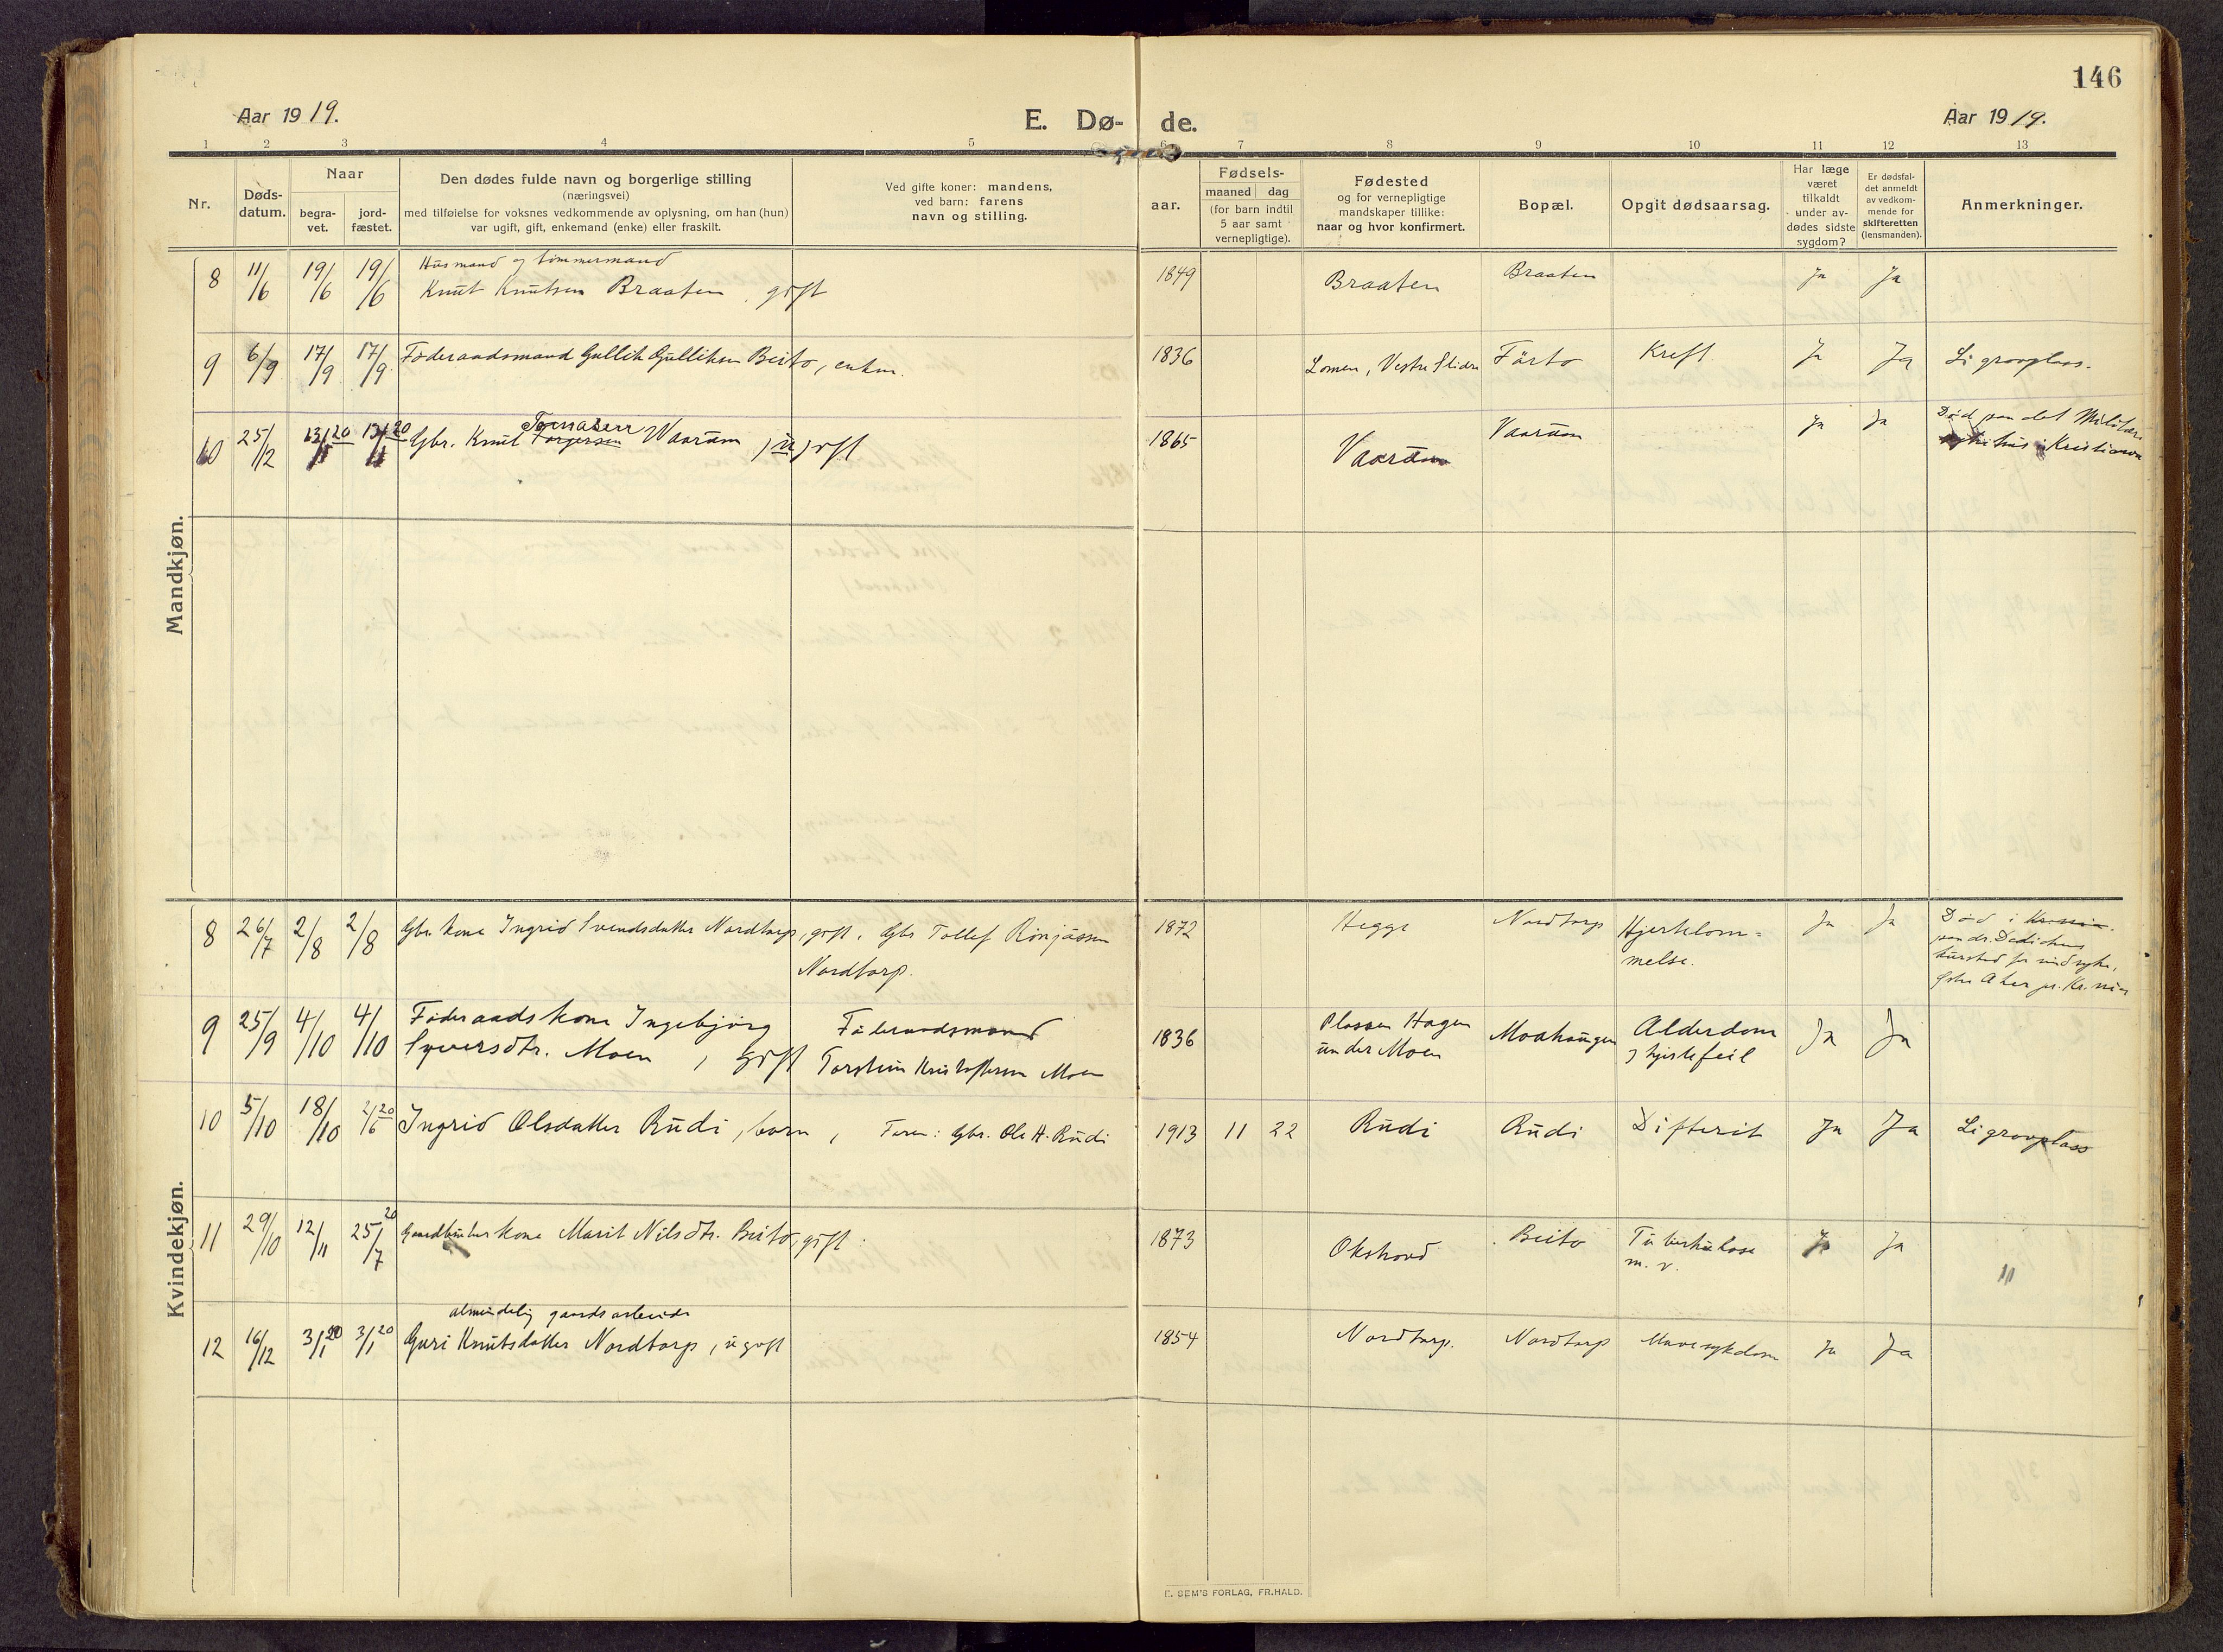 146
Aar 1919.
E. Dø-de.
Aar 1919.
1 2 3 4 5 6 7 8 9 10 11 12 13
Nr.
Døds-
datum.
Naar
begra-
vet.
jord-
fæstet.
Den dødes fulde navn og borgerlige stilling
(næringsvei)
med tilføielse for voksnes vedkommende av oplysning, om han (hun)
var ugift, gift, enkemand (enke) eller fraskilt.
Ved gifte koner: mandens,
ved barn: farens
navn og stilling.
Fødsels-
aar.
maaned dag
(for barn indtil
5 aar samt
vernepligtige).
Fødested
og for vernepligtige
mandskaper tillike:
naar og hvor konfirmert.
Bopæl.
Opgit dødsaarsag.
Har læge
været
tilkaldt
under av-
dødes sidste
sygdom?
Er dødsfal-
det anmeldt
av vedkom-
mende for
skifteretten
(lensmanden).
Anmerkninger.
Mandkjøn.
Husmand og tømmermand
8 11/6 19/6 19/6 Knut Knutsen Braaten, gift 1849 Braaten Braaten Ja Ja
9 6/9 17/9 17/9 Føderaadsmand Gullik Gulliksen Beito, enkm. 1836 Lomen, Vestre Slidre Førto Kreft Ja Ja Li gravplass.
10 25/12 13/1 20 13/1 20 Gbr. Knut Torgersen Waarum, ugift 1865 Vaarum Vaarum Ja Ja Død paa det Militære
i Kristiania
Kvindekjøn.
8 26/7 2/8 2/8 Gbr. kone Ingrid Svendsdatter Nordtorp, gift. Gbr Tollef
Nordtorp.
1872 Hegge Nordtorp Hjertelam-
melse.
Ja Ja Død i
paa dr. Dedichens
kursted for sindsyke,
Aker pr. Kr.nia
9 25/9 4/10 4/10 Føderaadskone Ingebjørg
Syversdtr. Moen, gift
Føderaadsmand
Torstein Kristoffersen Moen
1836 Plassen Hagen
under Moen
Moahaugen Alderdom
og hjertefeil
Ja Ja
10 5/10 18/10 2/6 20 Ingrid Olsdatter Rudi, barn, Faren: Gbr. Ole H. Rudi 1913 11 22 Rudi Rudi Difterit Ja Ja Li gravplass
11 29/10 12/11 25/7 20 Gaardbruker kone Marit Nilsdtr. Beito, gift. 1873 Okshovd Beito Tuberkulose
m. v.
Ja Ja "
almindelig gaardsarbeide
12 16/12 3/1 20 3/1 20 Guri Knutsdatter Nordtorp, ugift 1854 Nordtorp. Nordtorp Mavesykdom Ja Ja
E. SEM'S FORLAG, FR.HALD.